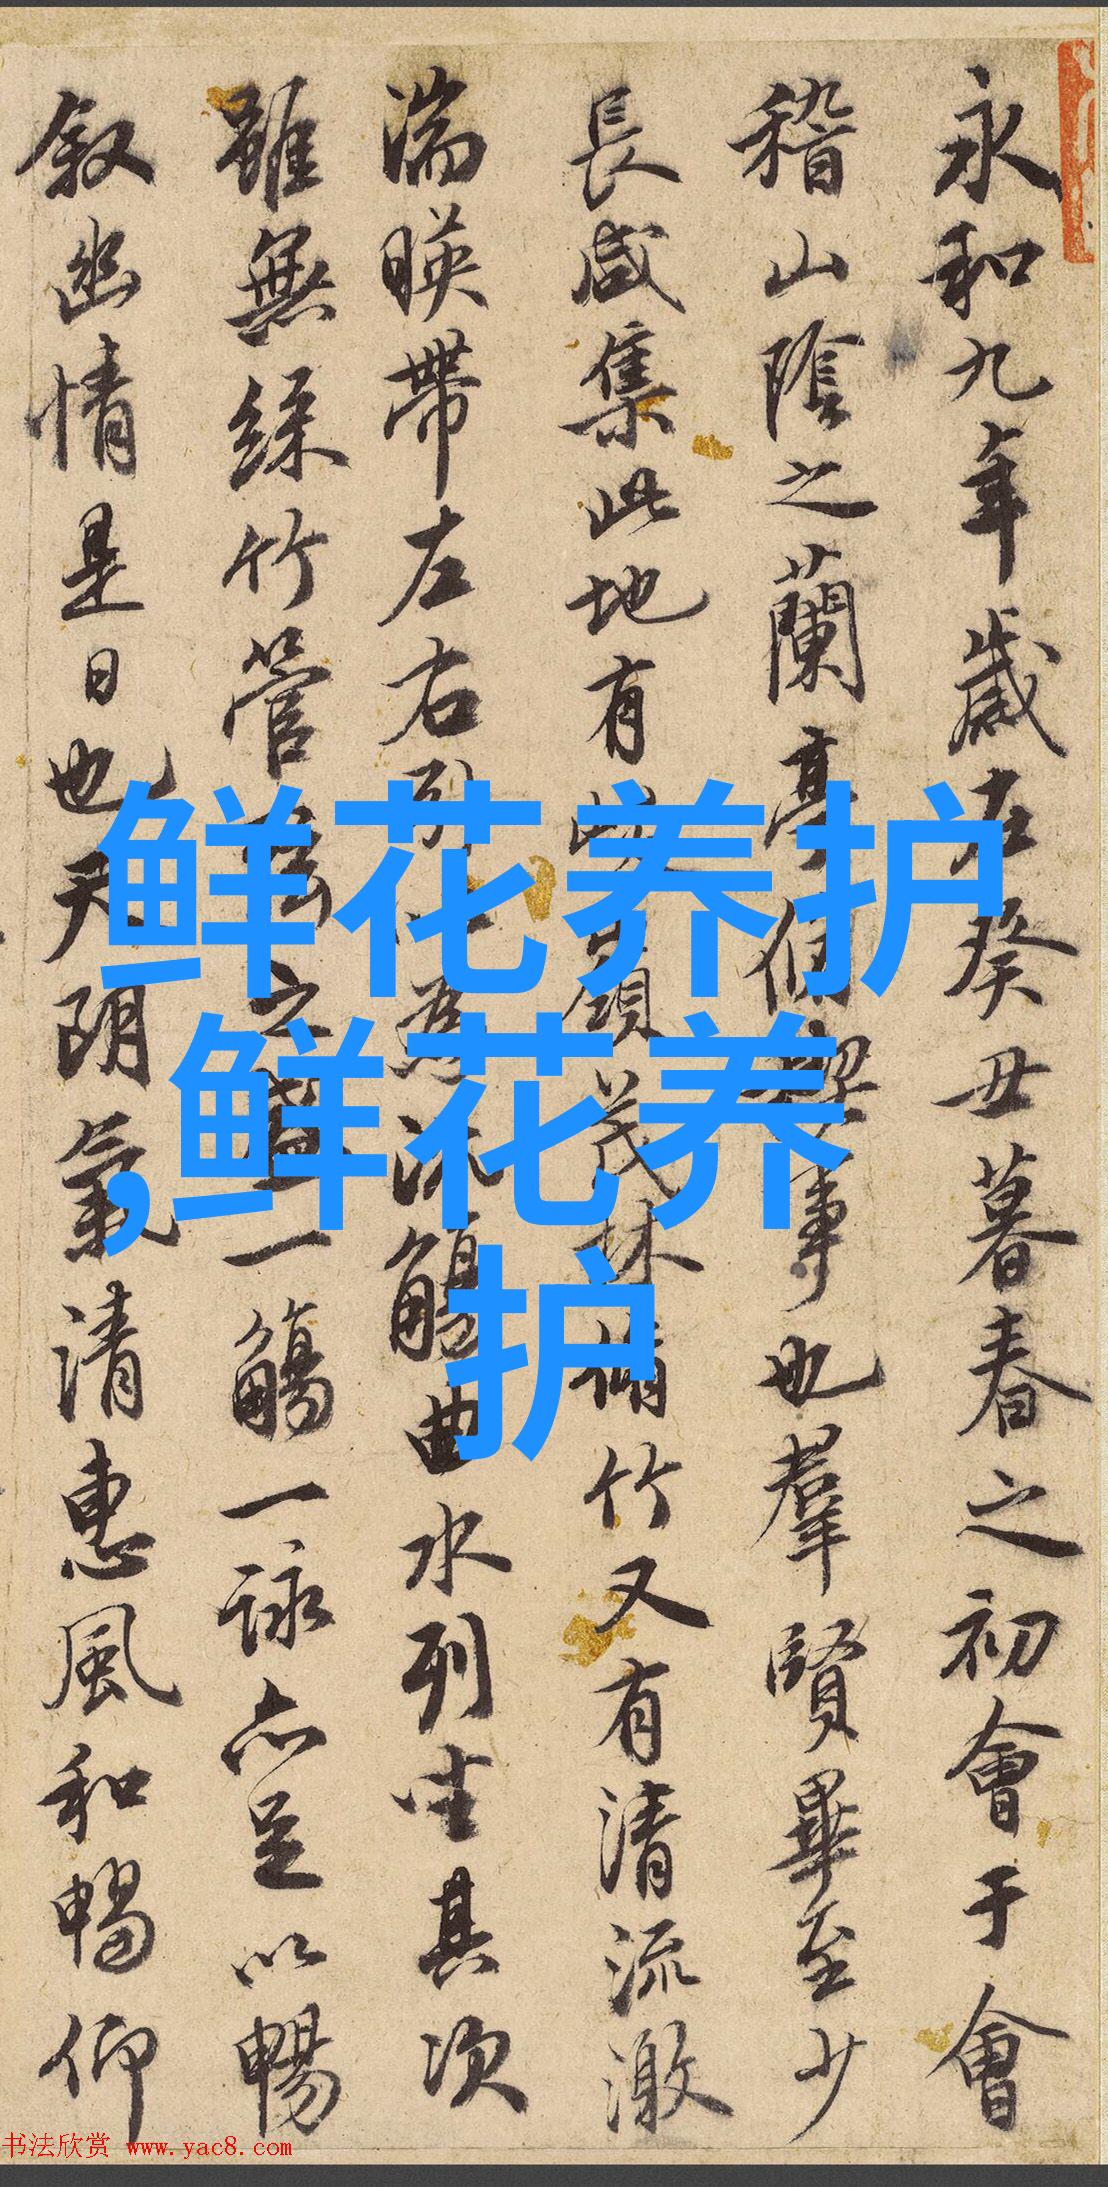 永和九年歲在癸丑暮春之初會于會
稽山陰之蘭亭脩禊事也羣賢畢至少
長咸集此地有峻領茂林脩竹又有清流激
湍暎帶左右引以為流觴曲水列坐其次
雖無絲竹管弦之盛一觴一詠亦足以暢
叙幽情是日也天朗氣清惠風和暢仰
鲜花养护
,鲜花养
护
书法欣赏 www.yac8.com